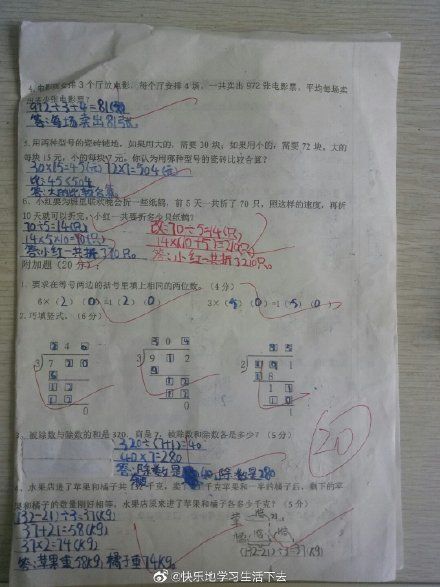 4、电影院安排3个厅放电影，每个厅安排4场，一共卖出972张电影票，平均每场卖
出多少张电影票？
972÷3÷4=81(张)
答:每场卖出81张.
5、用两种型号的瓷砖铺地，如果用大的，需要30块；如果用小的，需要72块。大的
每块15元，小的每块7元。你认为用哪种型号的瓷砖比较合算？
30×15=45(元) 72×7=504(元)
比:45<504
答:大的比较合算.
6、小红要为班里联欢晚会折一些纸鹤，前5天一共折了70只，照这样的速度，再折
10天就可以折完，小红一共要折多少只纸鹤？
70÷5=14(只)
14×5×10=
答:小红一共折210只.
改:70÷5=14(只)
14×(10+5)=210(只)
答:小红一共折210只.
附加题（20分）
1、要求在等号两边的括号里填上相同的两位数。（4分）
6×(2)(0)=1(2)(0)
3×(5)(0)=1(5)(0)
2、巧填竖式。（6分）
3、被除数与除数的和是320，商是7，被除数和除数各是多少？（5分）
320÷(7+1)=40
40×7=280
答:除数是40,除数是280
水果店进了苹果和橘子共
千克苹果和一半的橘子后，剩下的苹
果和橘子的数量刚好相等，水果店原来进了苹果和橘子各多少千克？（5分）
(132-21)÷3=37(kg)
37+21=58(kg)
37×2=74(kg)
答:苹果重58kg,橘子重74kg.
(132-21)÷3=37(kg)
20
@快乐地学习生活下去